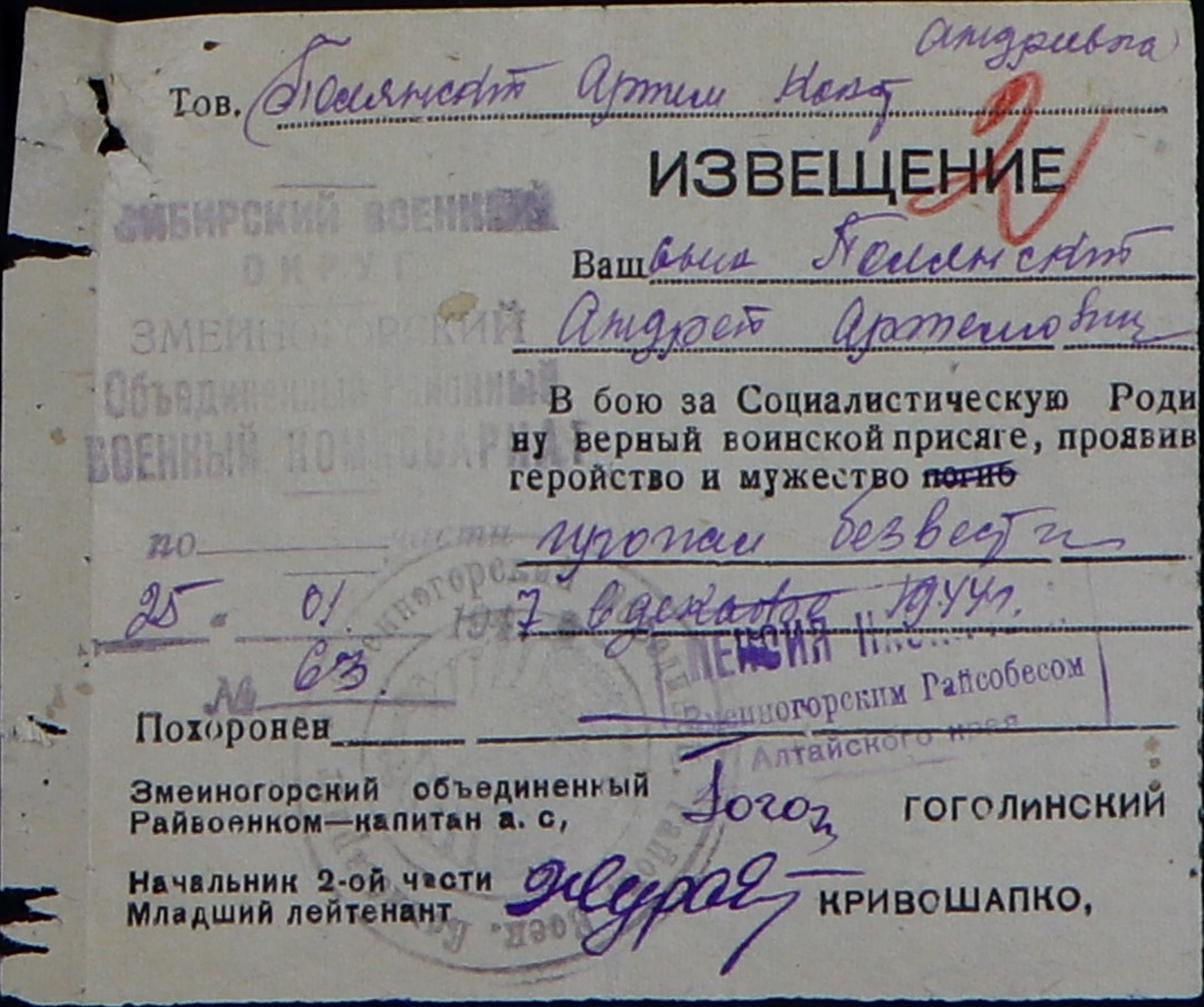 Тов. Полянский Артем
2
ИЗВЕЩЕНИЕ
СИБИРСКИЙ ВОЕННЫЙ
ОКРУГ
ЗМЕИНОГОРСКИЙ
Объединенный Районный
ВОЕННЫЙ КОМИССАРИАТ
по части
25 " 01. 1947
№ 63.
Ваш сын Полянский
Андрей Артемович
В бою за Социалистическую Роди
ну верный воинской присяге, проявив
геройство и мужество погиб
пропал без вести
в декабре 1944г.
ПЕНСИЯ
Змеиногорским Райсобесом
Алтайского края
Похоронен
Змеиногорский объединенный
Райвоенком—капитан а. с, ГОГОЛИНСКИЙ
Начальник 2-ой части
Младший лейтенант КРИВОШАПКО,